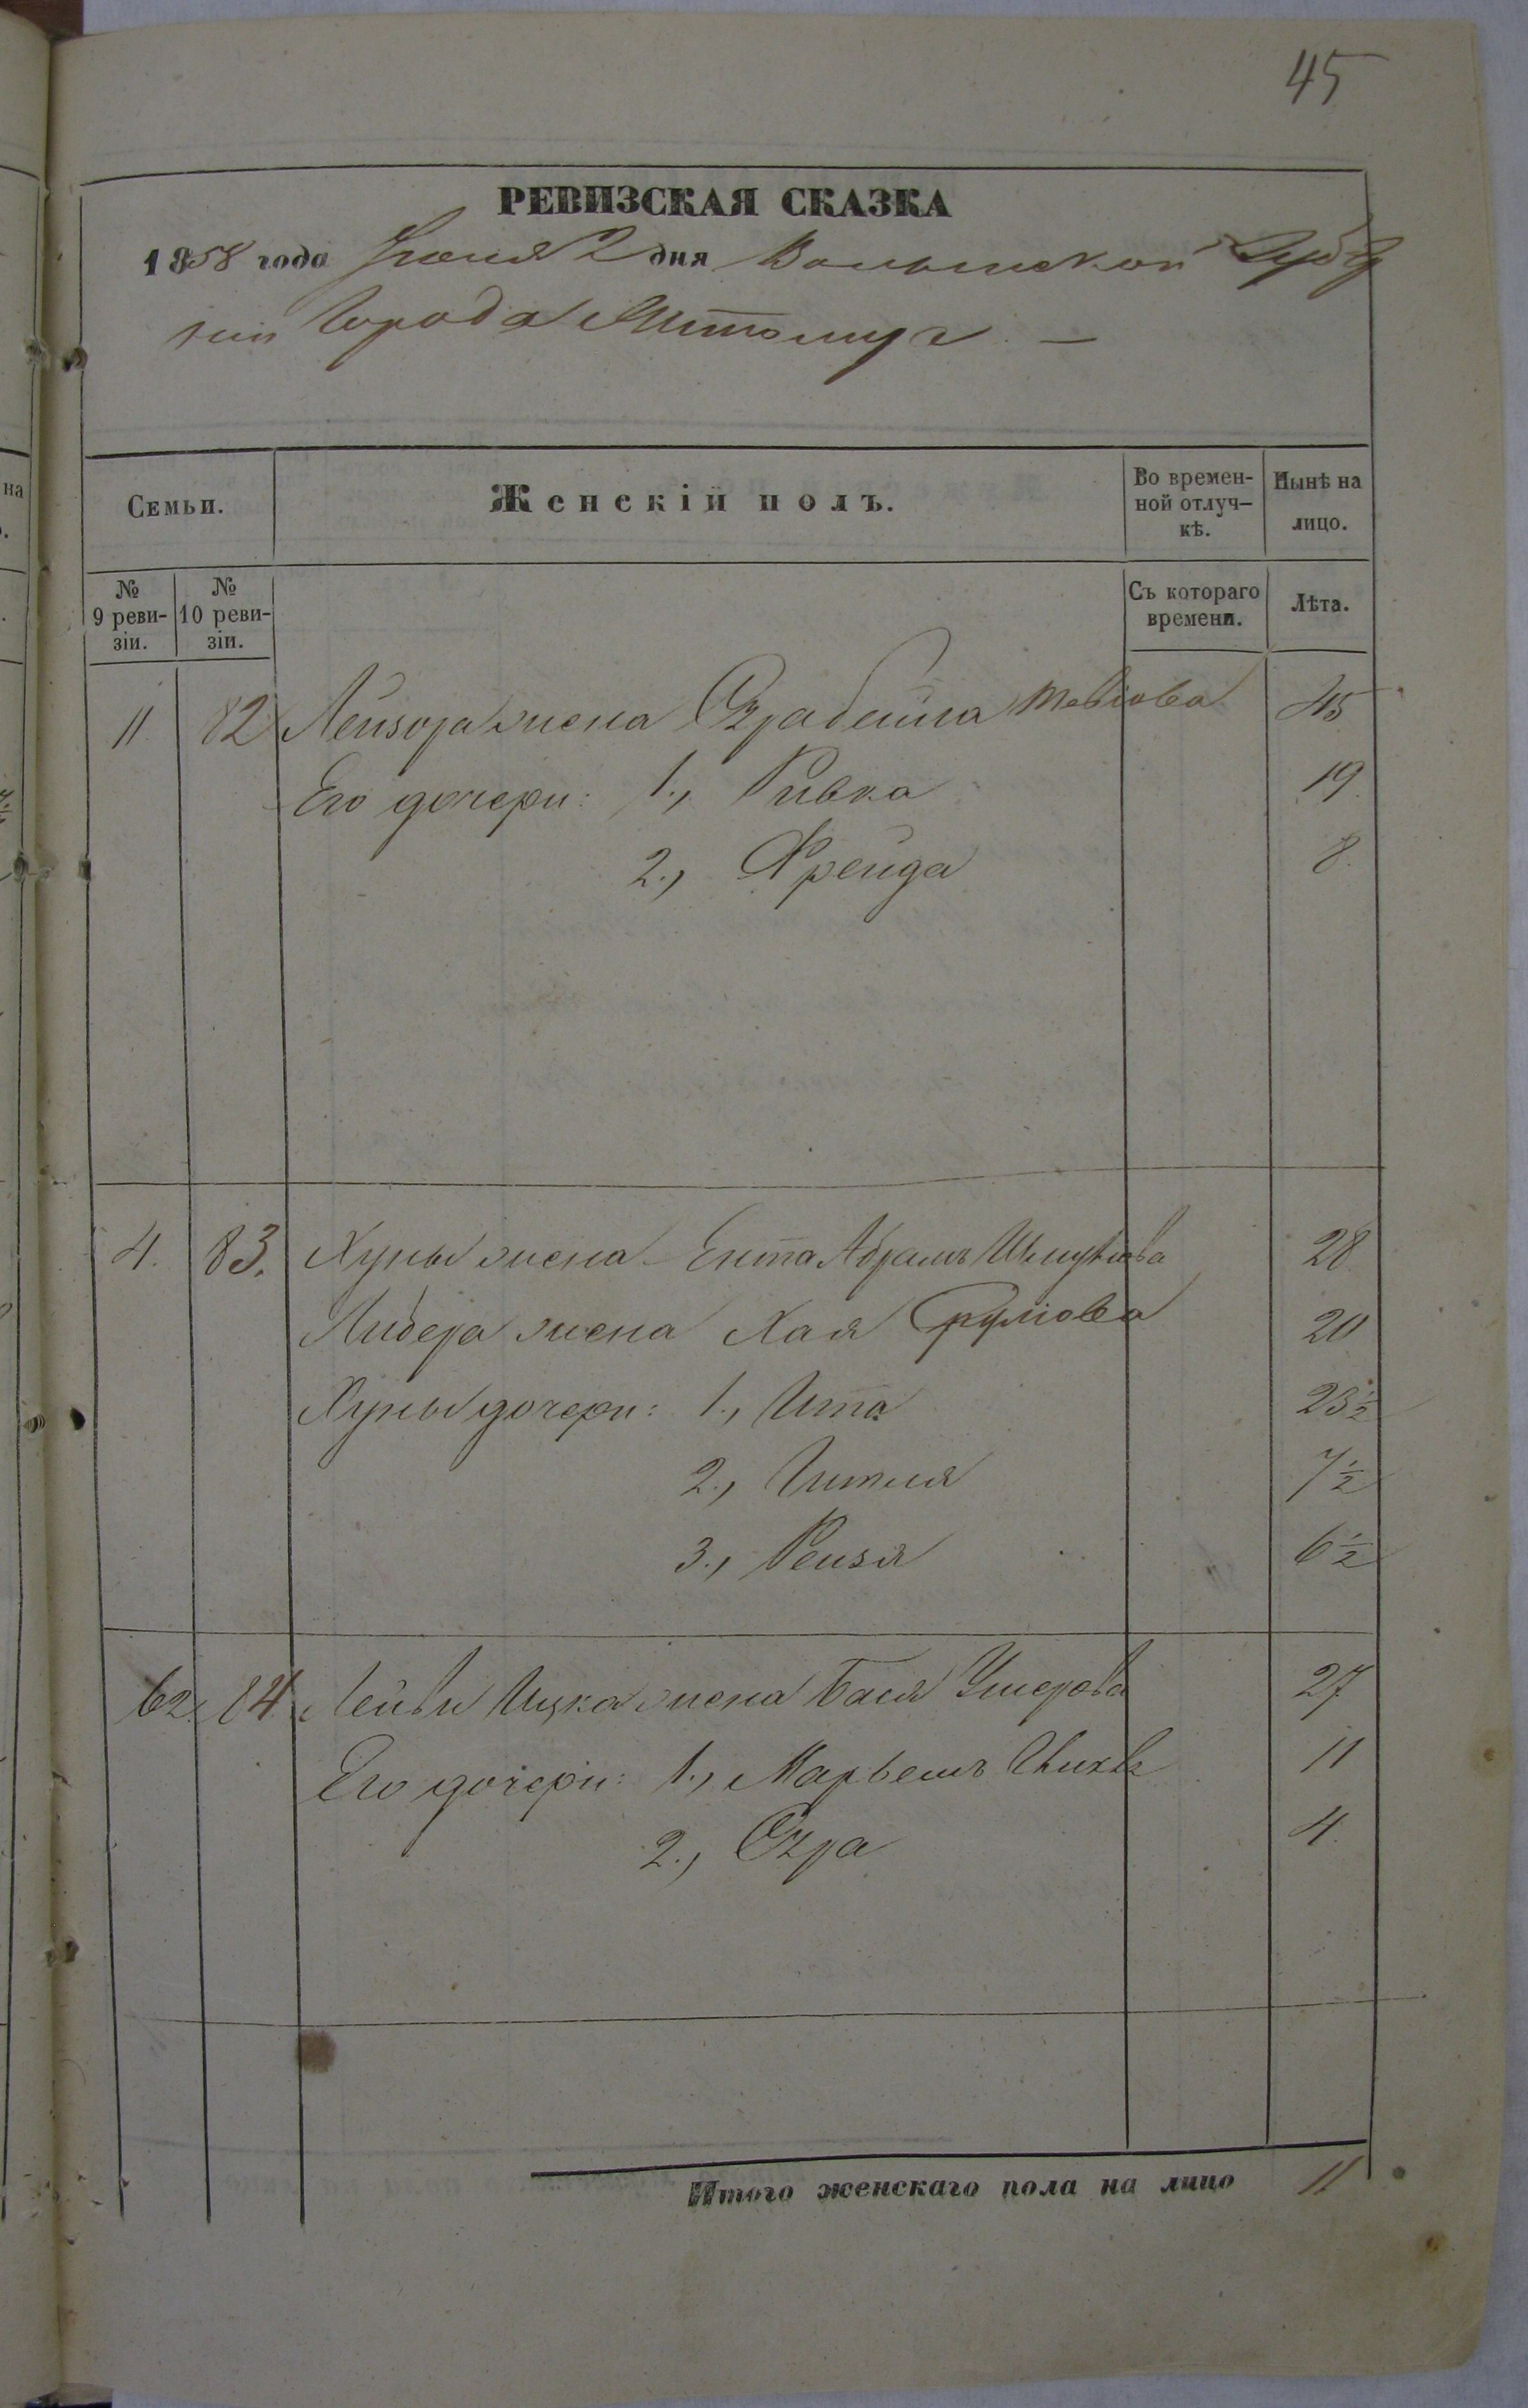 45
РЕВИЗСКАЯ СКАЗКА
1858 года Іюня 2 дня Волынской Губер
ніи Города Житомира —
Семьи.
Женскій полъ.
Во времен-
ной отлуч-
кѣ.
Нынѣ на
лицо.
№
9 реви-
зіи.
№
10 реви-
зіи.
Съ котораго
времени.
Лѣта.
11 82 Лейзора жена Тевіова 45
Его дочери: 1., Ривка 19.
2., Фрейда 8.
4. 83. Хуны жена Ента Абрамъ Шмулiова 28
Либера жена Хая Сруліова 20
Хуны дочери: 1., Ита 23½
2., Гитля 7½
3., Рейзя 6½
62. 84. Лейви Ицка жена Бася Ушерова 27
Его дочери: 1., Марьемъ 11
2., 4.
Итого женскаго пола на лицо 11